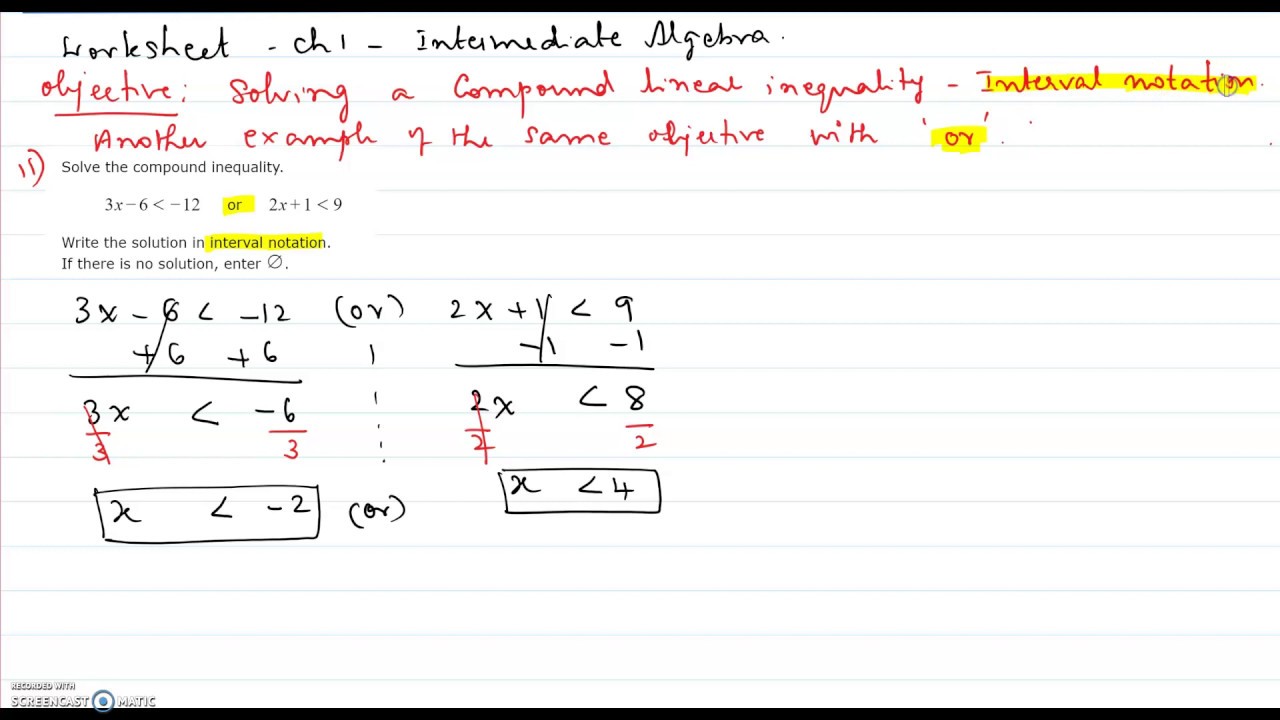 Worksheet - Ch 1 - Intermediate Algebra.
Objective: Solving a Compound linear inequality - Interval notation.
Another example of the same objective with 'or'.
11) Solve the compound inequality.
3x−6 < −12 or 2x+1 < 9
Write the solution in interval notation.
If there is no solution, enter ∅.
3x - 6 < -12 (or) 2x + 1 < 9
+6 +6 -1 -1
3x < -6 2x < 8
3 3 2 2
x < -2 (or) x < 4
RECORDED WITH
SCREENCAST MATIC